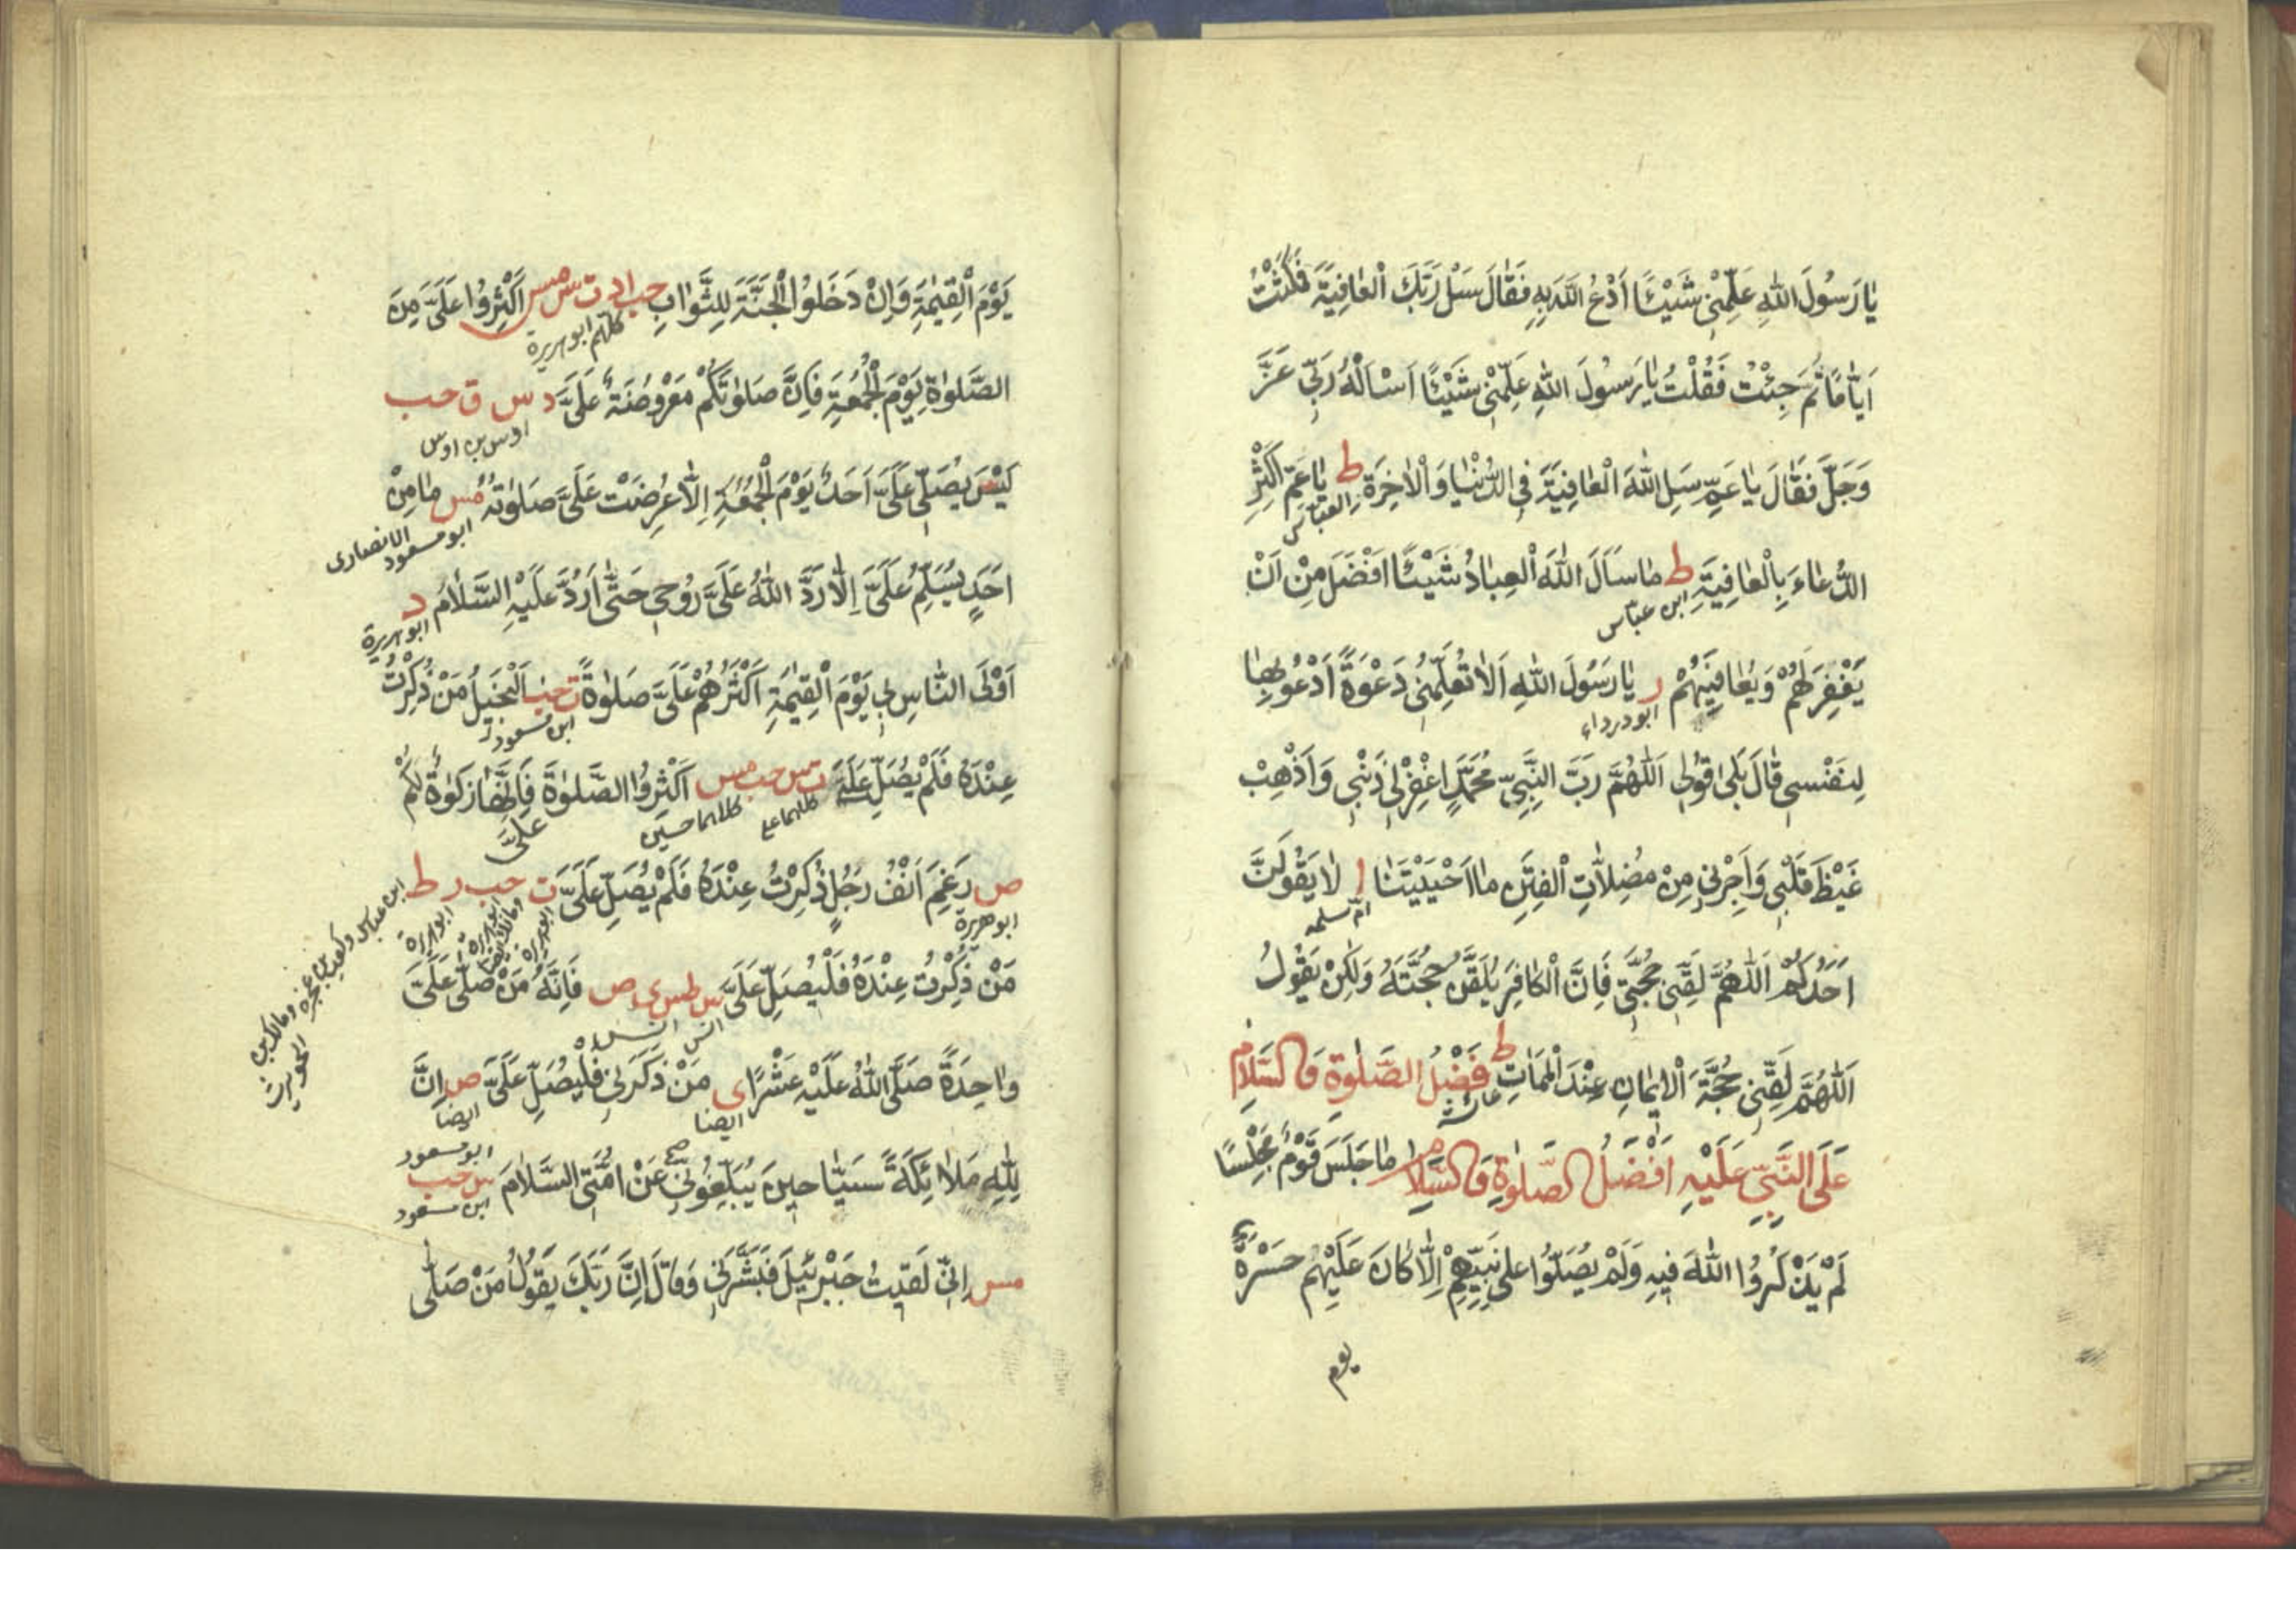 يَا رَسُولَ اللهِ عَلِّمْنِي شَيْئًا اَدْعُ اللهَ بِهِ فَقَالَ سَلْ رَبَّكَ الْعَافِيَةَ فَمَكَثْتُ
اَيَّامًا ثُمَّ جِئْتُ فَقُلْتُ يَا رَسُولَ اللهِ عَلِّمْنِي شَيْئًا اَسْاَلُهُ رَبِّي عَزَّ
وَجَلَّ فَقَالَ يَا عَمِّ سَلِ اللهَ الْعَافِيَةَ فِي الدُّنْيَا وَالْاٰخِرَةِ ط يَا عَمِّ اَكْثِرِ
العباس
الدُّعَاءَ بِالْعَافِيَةِ ط مَا سَاَلَ اللهَ الْعِبَادُ شَيْئًا اَفْضَلَ مِنْ اَنْ
ابن عباس
يَغْفِرَ لَهُمْ وَيُعَافِيَهُمْ ر يَا رَسُولَ اللهِ اَلَا تُعَلِّمُنِي دَعْوَةً اَدْعُو بِهَا
ابو درداء
لِنَفْسِي قَالَ بَلٰى قُولِي اَللّٰهُمَّ رَبَّ النَّبِيِّ مُحَمَّدٍ اغْفِرْ لِي ذَنْبِي وَاَذْهِبْ
غَيْظَ قَلْبِي وَاَجِرْنِي مِنْ مُضِلَّاتِ الْفِتَنِ مَا اَحْيَيْتَنَا ا لَا يَقُولَنَّ
ام سلمه
اَحَدُكُمْ اَللّٰهُمَّ لَقِّنِّي حُجَّتِي فَاِنَّ الْكَافِرَ يُلَقَّنُ حُجَّتَهُ وَلٰكِنْ يَقُولُ
اَللّٰهُمَّ لَقِّنِّي حُجَّةَ الْاِيمَانِ عِنْدَ الْمَمَاتِ ط فَضْلُ الصَّلٰوةِ وَالسَّلَامِ
عائشة
عَلَى النَّبِيِّ عَلَيْهِ اَفْضَلُ الصَّلٰوةِ وَالسَّلَامِ مَا جَلَسَ قَوْمٌ مَجْلِسًا
لَمْ يَذْكُرُوا اللهَ فِيهِ وَلَمْ يُصَلُّوا عَلٰى نَبِيِّهِمْ اِلَّا كَانَ عَلَيْهِمْ حَسْرَةً
يوم
يَوْمَ الْقِيٰمَةِ وَاِنْ دَخَلُوا الْجَنَّةَ لِلثَّوَابِ حب ا د ت س مس اَكْثِرُوا عَلَيَّ مِنَ
كلهم ابو هريرة
الصَّلٰوةِ يَوْمَ الْجُمُعَةِ فَاِنَّ صَلٰوتَكُمْ مَعْرُوضَةٌ عَلَيَّ د س ق حب
اوس بن اوس
لَيْسَ يُصَلِّي عَلَيَّ اَحَدٌ يَوْمَ الْجُمُعَةِ اِلَّا عُرِضَتْ عَلَيَّ صَلٰوتُهُ مس مَا مِنْ
ابو مسعود الانصارى
اَحَدٍ يُسَلِّمُ عَلَيَّ اِلَّا رَدَّ اللهُ عَلَيَّ رُوحِي حَتّٰى اَرُدَّ عَلَيْهِ السَّلَامَ د
ابو هريرة
اَوْلَى النَّاسِ بِي يَوْمَ الْقِيٰمَةِ اَكْثَرُهُمْ عَلَيَّ صَلٰوةً ت حب اَلْبَخِيلُ مَنْ ذُكِرْتُ
ابن مسعود
عِنْدَهُ فَلَمْ يُصَلِّ عَلَيَّ ت س حب مس اَكْثِرُوا الصَّلٰوةَ عَلَيَّ فَاِنَّهَا زَكٰوةٌ لَكُمْ
كلاهما على كلاهما حسين
ص رَغِمَ اَنْفُ رَجُلٍ ذُكِرْتُ عِنْدَهُ فَلَمْ يُصَلِّ عَلَيَّ ت حب ر ط
ابو هريرة ابو هريرة ابو هريرة ابن عباس وكعب بن عجرة ومالك بن الحويرث
مَنْ ذُكِرْتُ عِنْدَهُ فَلْيُصَلِّ عَلَيَّ س طس ى ص فَاِنَّهُ مَنْ صَلّٰى عَلَيَّ
انس انس
وَاحِدَةً صَلَّى اللهُ عَلَيْهِ عَشْرًا ى مَنْ ذَكَرَنِي فَلْيُصَلِّ عَلَيَّ ص اِنَّ
ايضا ايضا
لِلّٰهِ مَلَائِكَةً سَيَّاحِينَ يُبَلِّغُونِّي عَنْ اُمَّتِي السَّلَامَ س حب
ابو مسعود ابن مسعود
مس اِنِّي لَقِيتُ جَبْرَئِيلَ فَبَشَّرَنِي وَقَالَ اِنَّ رَبَّكَ يَقُولُ مَنْ صَلّٰى